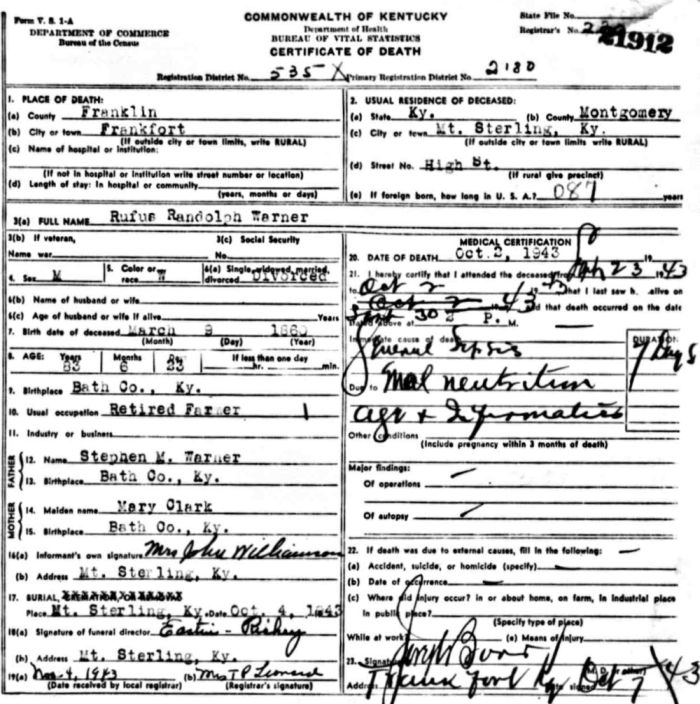 Form V. S. 1-A
DEPARTMENT OF COMMERCE
Bureau of the Census
COMMONWEALTH OF KENTUCKY
Department of Health
BUREAU OF VITAL STATISTICS
CERTIFICATE OF DEATH
State File No.
Registrar's No.
21912
Registration District No. 535 X Primary Registration District No. 2180
1. PLACE OF DEATH:
(a) County Franklin
(b) City or town Frankfort
(If outside city or town limits, write RURAL)
(c) Name of hospital or institution:
(If not in hospital or institution write street number or location)
(d) Length of stay: In hospital or community
(years, months or days)
2. USUAL RESIDENCE OF DECEASED:
(a) State Ky. (b) County Montgomery
(c) City or town Mt. Sterling, Ky.
(If outside city or town limits, write RURAL)
(d) Street No. High St.
(If rural give precinct)
(e) If foreign born, how long in U. S. A.? 087 years
3(a) FULL NAME Rufus Randolph Warner
3(b) If veteran,
Name war
3(c) Social Security
No.
4. Sex M
5. Color or race W
6(a) Single, widowed, married, divorced Divorced
6(b) Name of husband or wife
6(c) Age of husband or wife if alive Years
7. Birth date of deceased March 9 1860
(Month) (Day) (Year)
8. AGE: Years Months Days If less than one day
83 6 23 hr. min.
9. Birthplace Bath Co., Ky.
10. Usual occupation Retired Farmer
11. Industry or business
FATHER
12. Name Stephen M. Warner
13. Birthplace Bath Co., Ky.
MOTHER
14. Maiden name Mary Clark
15. Birthplace Bath Co., Ky.
16(a) Informant's own signature Mrs John Williamson
(b) Address Mt. Sterling, Ky.
17. BURIAL,
Place Mt. Sterling, Ky. Date Oct. 4, 1943
18(a) Signature of funeral director Eastin - Richey
(b) Address Mt. Sterling, Ky.
19(a) Nov. 4, 1943 (b) Mrs T P Leonard
(Date received by local registrar) (Registrar's signature)
MEDICAL CERTIFICATION
20. DATE OF DEATH Oct. 2, 1943 19
21. I hereby certify that I attended the deceased from 23 1943
to Oct 2 1943 that I last saw h. alive on
Sept 30 43 and that death occurred on the date
stated above at 2 P. M.
Immediate cause of death
DURATION
Sepsis 7 Days
Due to Mal neutrition
age &
Other conditions
(Include pregnancy within 3 months of death)
Major findings:
Of operations —
Of autopsy —
22. If death was due to external causes, fill in the following: —
(a) Accident, suicide, or homicide (specify) —
(b) Date of occurrence —
(c) Where did injury occur? in or about home, on farm, in industrial place
in public place?
(Specify type of place)
While at work? (e) Means of injury
23. Signature M. D. or other
Address Frankfort Ky Date signed Oct 7 43